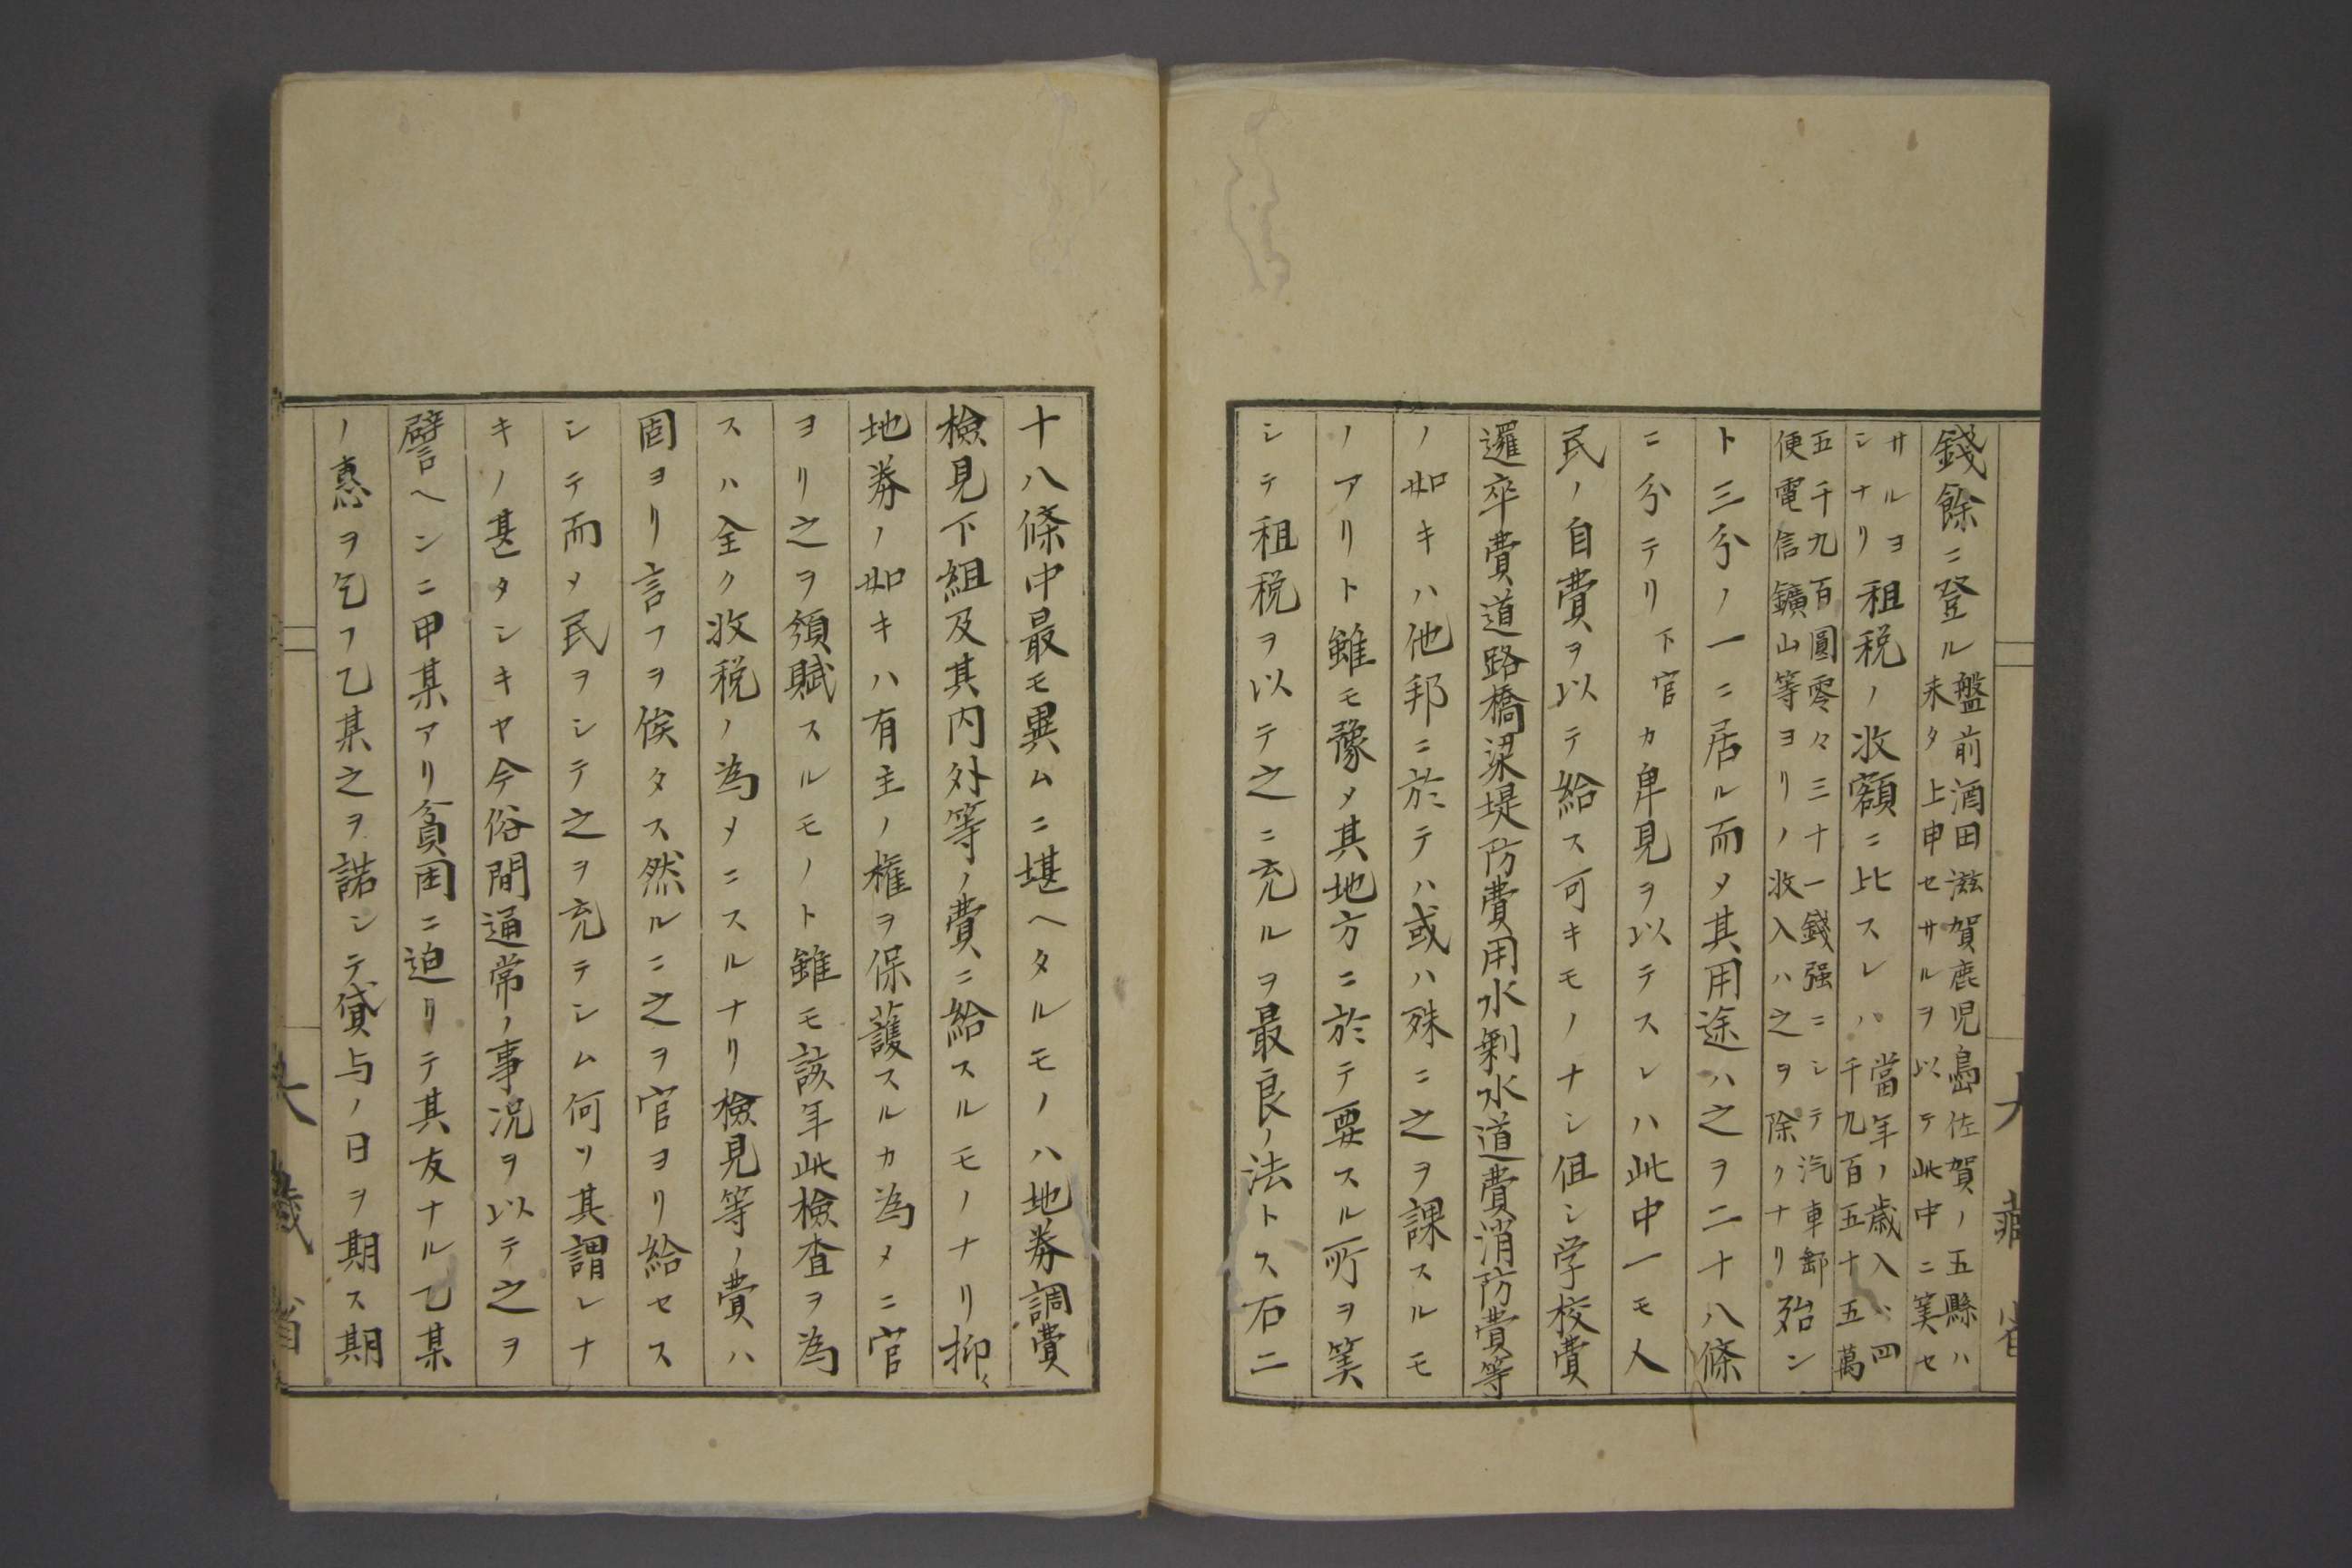 錢餘ニ登ル盤前酒田滋賀鹿児島佐賀ノ五縣ハ
未タ上申セサルヲ以テ此中ニ筭セ
サルヨ
シナリ租税ノ收額ニ比スレハ當年ノ歳入ハ四
千九百五十五萬
五千九百圓零々三十一錢强ニシテ汽車郵
便電信鑛山等ヨリノ收入ハ之ヲ除クナリ殆ン
ト三分ノ一ニ居ル而メ其用途ハ之ヲ二十八條
ニ分テリ下官カ卑見ヲ以テスレハ此中一モ人
民ノ自費ヲ以テ給ス可キモノナシ但シ学校費
邏卒費道路橋梁堤防費用水剰水道費消防費等
ノ如キハ他邦ニ於テハ或ハ殊ニ之ヲ課スルモ
ノアリト雖モ豫メ其地方ニ於テ要スル所ヲ筭
シテ租税ヲ以テ之ニ充ルヲ最良ノ法トス右二
大藏省
十八條中最モ異ムニ堪ヘタルモノハ地券調費
檢見下組及其内外等ノ費ニ給スルモノナリ抑々
地券ノ如キハ有主ノ權ヲ保護スルカ為メニ官
ヨリ之ヲ頒賦スルモノト雖モ該年此檢査ヲ為
スハ全ク收税ノ為メニスルナリ檢見等ノ費ハ
固ヨリ言フヲ俟タス然ルニ之ヲ官ヨリ給セス
シテ而メ民ヲシテ之ヲ充テシム何ソ其謂レナ
キノ甚タシキヤ今俗間通常ノ事况ヲ以テ之ヲ
譬ヘンニ甲某アリ貧困ニ迫リテ其友ナル乙某
ノ惠ヲ乞フ乙某之ヲ諾シテ貸与ノ日ヲ期ス期
大藏省